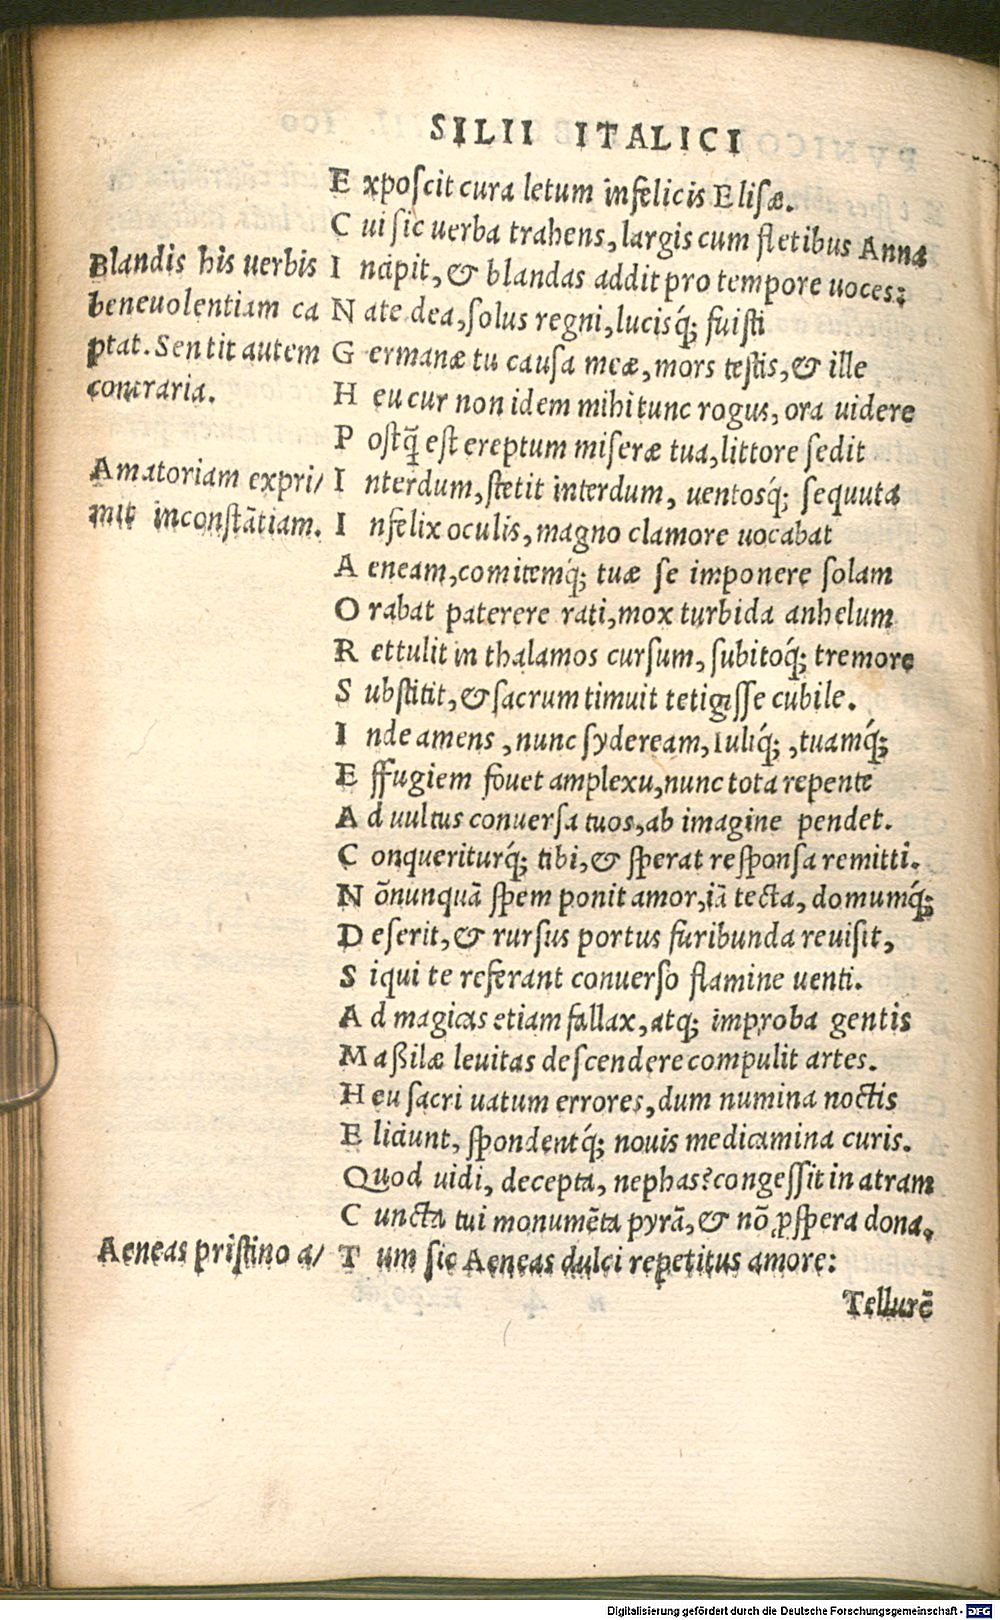 SILII ITALICI
Exposcit cura letum infelicis Elisæ.
Cui sic uerba trahens, largis cum fletibus Anna
Blandis his uerbis
Incipit, & blandas addit pro tempore uoces:
beneuolentiam ca
Nate dea, solus regni, lucisq́; fuisti
ptat. Sentit autem
Germanæ tu causa meæ, mors testis, & ille
contraria.
Heu cur non idem mihi tunc rogus, ora uidere
Postq̃ est ereptum miseræ tua, littore sedit
Amatoriam expri/
Interdum, stetit interdum, uentosq́; sequuta
mit inconstãtiam.
Infelix oculis, magno clamore uocabat
Aeneam, comitemq́; tuæ se imponere solam
Orabat paterere rati, mox turbida anhelum
Rettulit in thalamos cursum, subitoq́; tremore
Substitit, & sacrum timuit tetigisse cubile.
Inde amens, nunc sydeream, Iuliq́;, tuamq́;
Effugiem fouet amplexu, nunc tota repente
Ad uultus conuersa tuos, ab imagine pendet.
Conqueriturq́; tibi, & sperat responsa remitti.
Nõnunquã spem ponit amor, iã tecta, domumq́;
Deserit, & rursus portus furibunda reuisit,
Siqui te referant conuerso flamine uenti.
Ad magicas etiam fallax, atq; improba gentis
Maßilæ leuitas descendere compulit artes.
Heu sacri uatum errores, dum numina noctis
Eliciunt, spondentq́; nouis medicamina curis.
Quod uidi, decepta, nephas? congessit in atram
Cuncta tui monumẽta pyrã, & nõ ꝓspera dona.
Aeneas pristino a/
Tum sic Aeneas dulci repetitus amore:
Tellurẽ
Digitalisierung gefördert durch die Deutsche Forschungsgemeinschaft - DFG